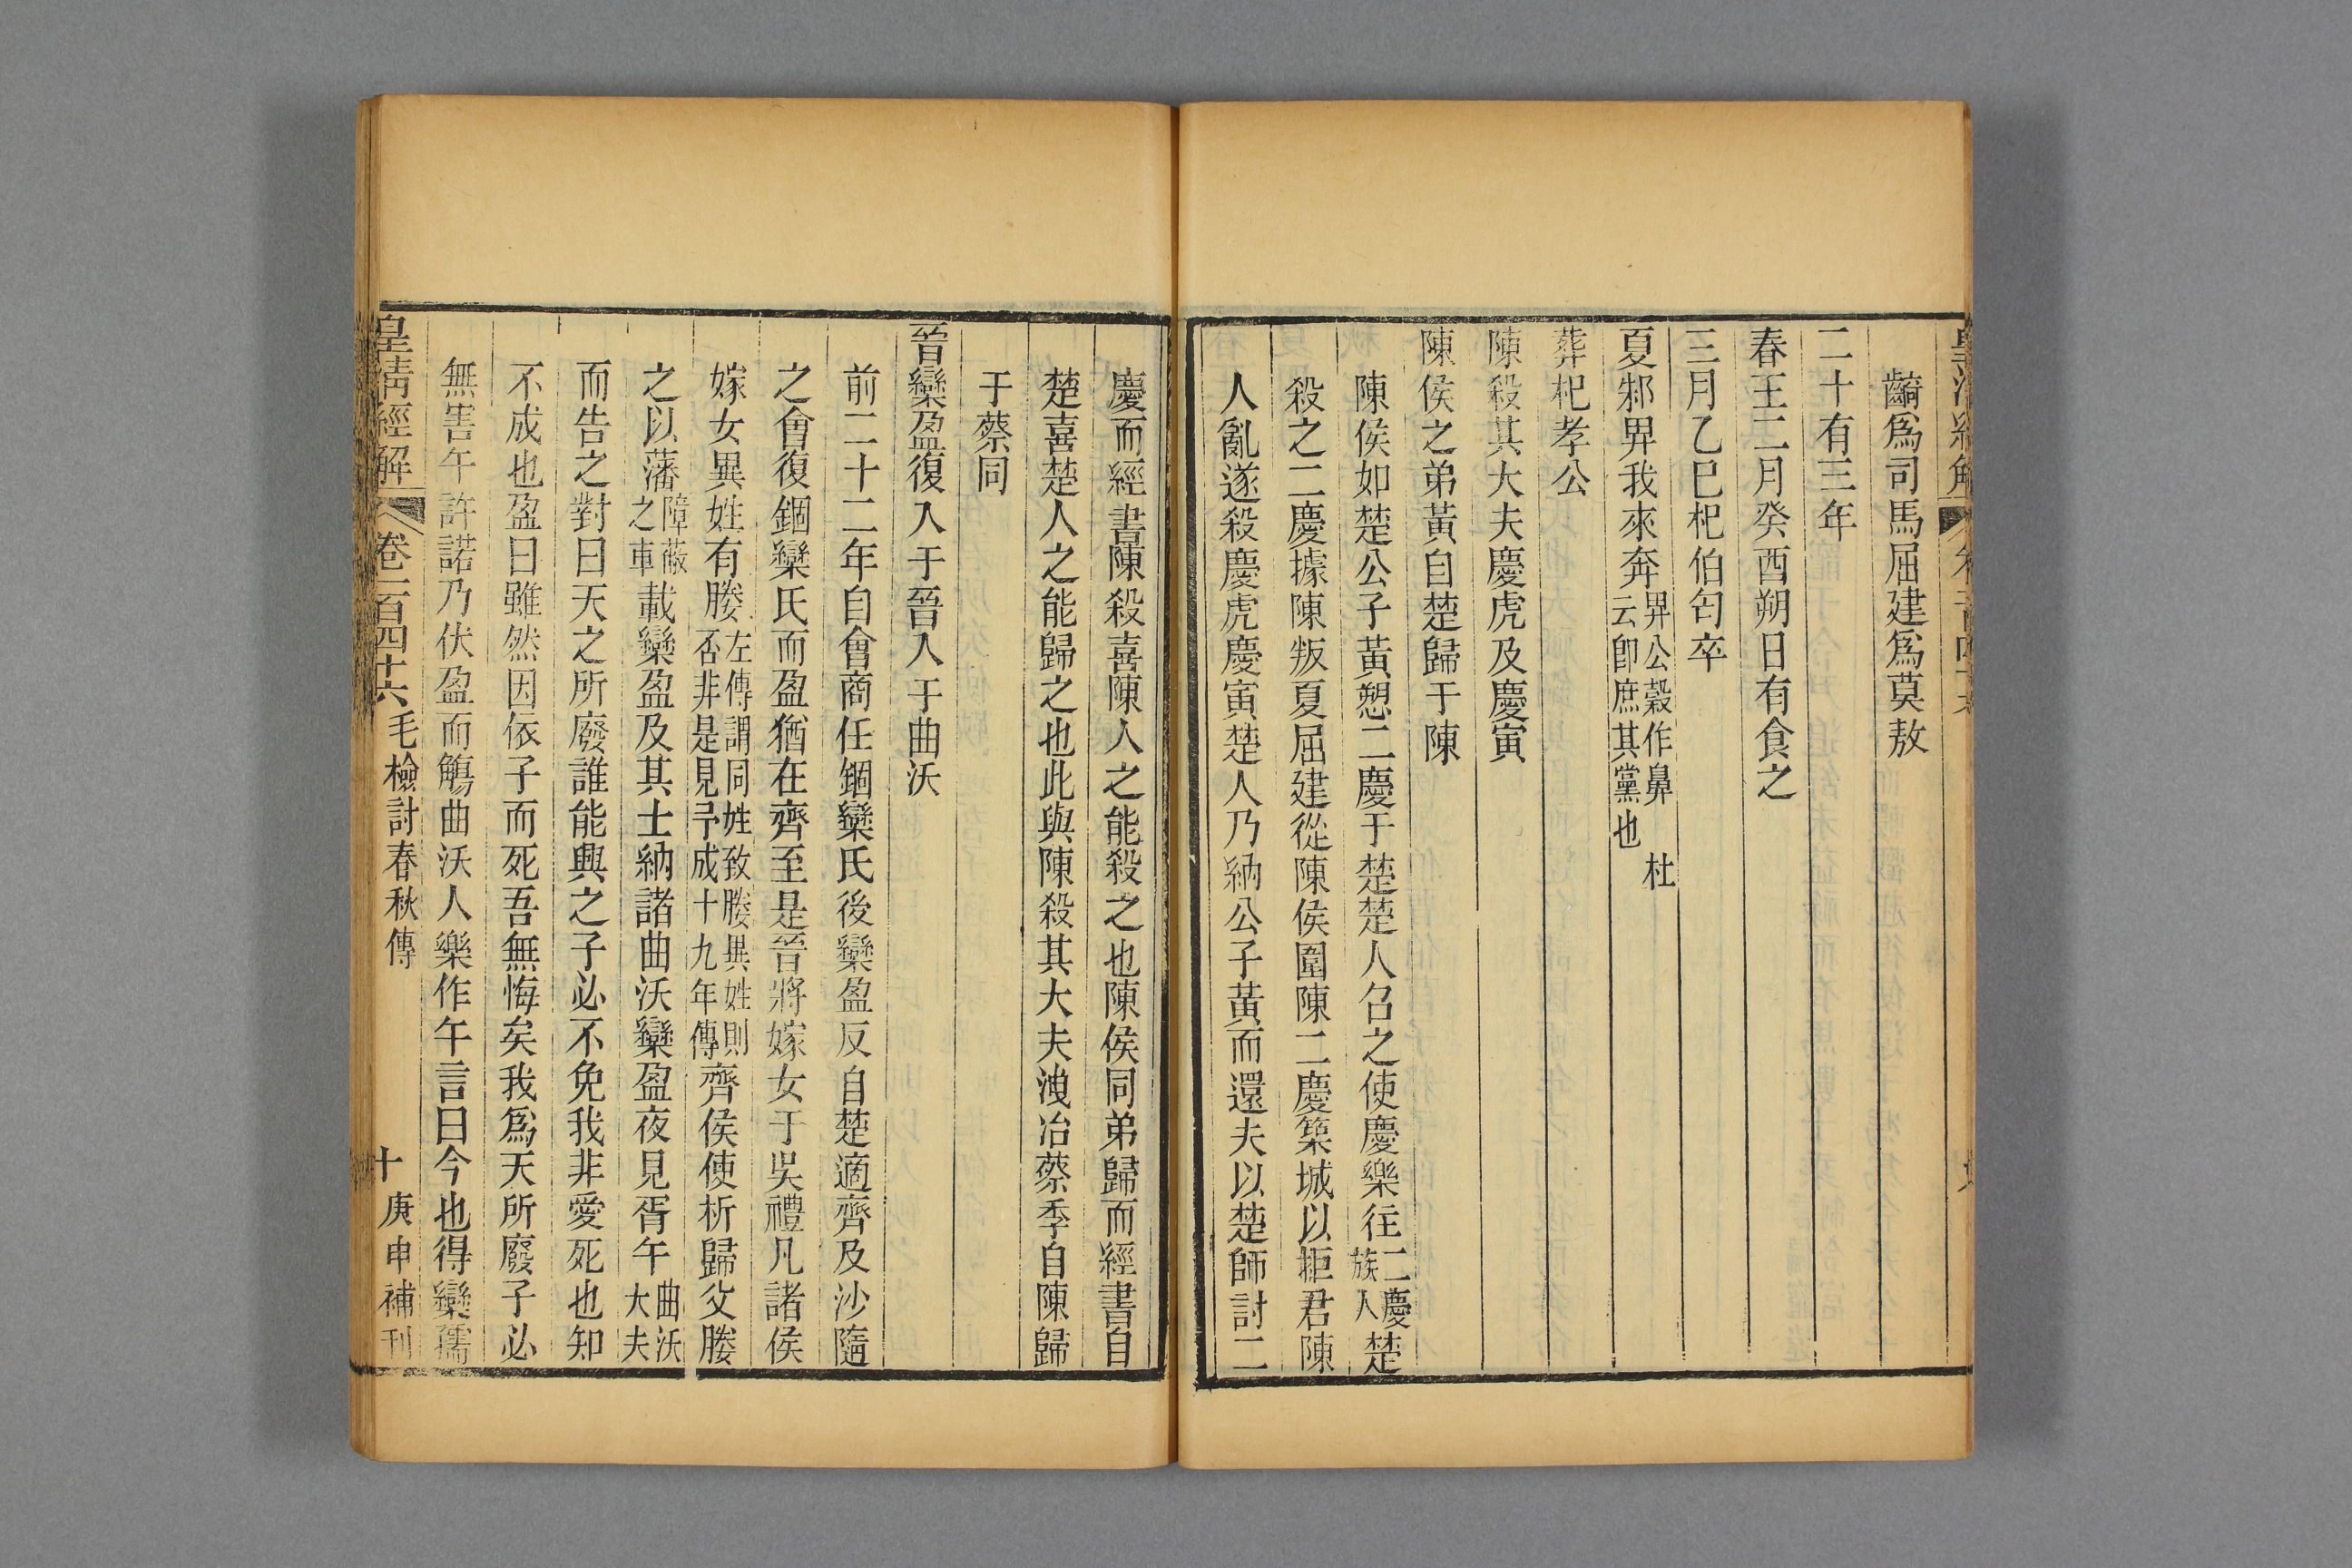 齮爲司馬屈建爲莫敖
二十有三年
春王二月癸酉朔日有食之
三月乙巳杞伯匄卒
夏邾畀我來奔畀公穀作鼻杜云卽庶其黨也
葬杞孝公
陳殺其大夫慶虎及慶寅
陳侯之弟黃自楚歸于陳
陳侯如楚公子黃愬二慶于楚楚人召之使慶樂往二慶族人楚
殺之二慶據陳叛夏屈建從陳侯圍陳二慶築城以拒君陳
人亂遂殺慶虎慶寅楚人乃納公子黃而還夫以楚師討二
慶而經書陳殺喜陳人之能殺之也陳侯同弟歸而經書自
楚喜楚人之能歸之也此與陳殺其大夫洩冶蔡季自陳歸
于蔡同
晉欒盈復入于晉入于曲沃
前二十二年自會商任錮欒氏後欒盈反自楚適齊及沙隨
之會復錮欒氏而盈猶在齊至是晉將嫁女于吳禮凡諸侯
嫁女異姓有媵左傳謂同姓致媵異姓則否非是見予成十九年傳齊侯使析歸父媵
之以藩障蔽之車載欒盈及其士納諸曲沃欒盈夜見胥午曲沃大夫
而告之對曰天之所廢誰能興之子必不免我非愛死也知
不成也盈曰雖然因依子而死吾無悔矣我爲天所廢子必
無害午許諾乃伏盈而觴曲沃人樂作午言曰今也得欒孺
皇清經解 卷一百四十六 毛檢討春秋傳 十 庚申補刊